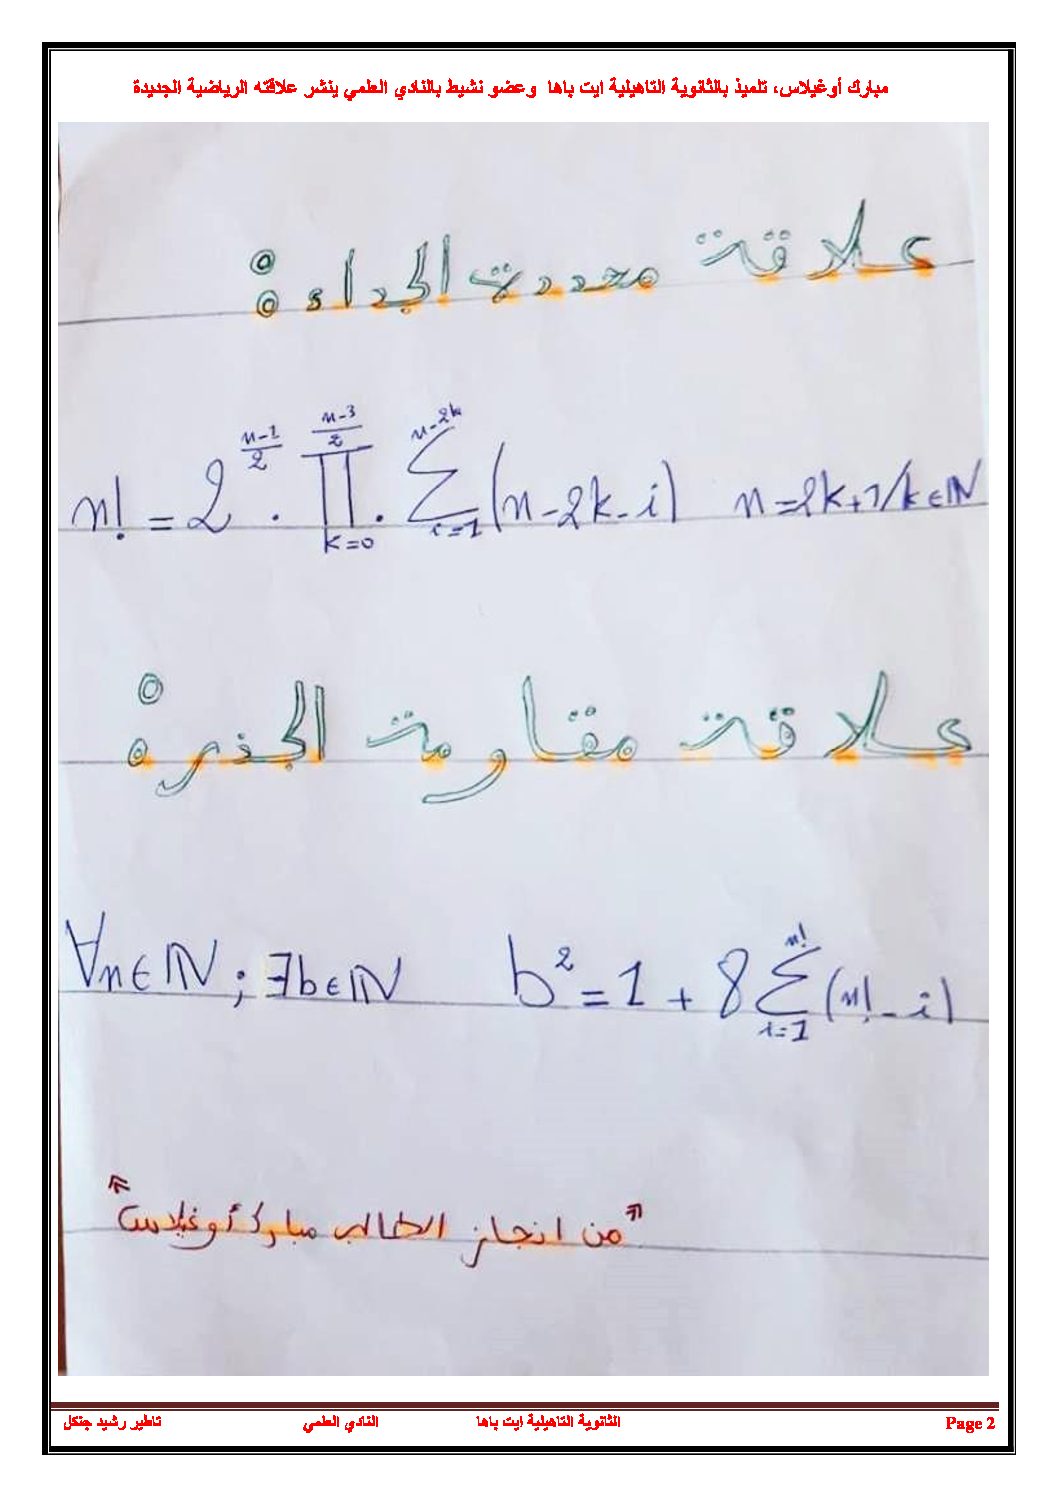 مبارك أوغيلاس، تلميذ بالثانوية التاهيلية ايت باها وعضو نشيط بالنادي العلمي ينشر علاقته الرياضية الجديدة
علاقة محددة الجداء:
n! = 2^{\frac{n-1}{2}} . \prod_{k=0}^{\frac{n-3}{2}} . \sum_{i=1}^{n-2k} (n-2k-i) n=2k+1/k∈ℕ
علاقة مقاومة الجذر:
∀n∈ℕ; ∃b∈ℕ b² = 1 + 8 \sum_{i=1}^{n!} (n!-i)
"من انجاز الطالب مبارك أوغيلاس"
تاطير رشيد جنكل النادي العلمي الثانوية التاهيلية ايت باها Page 2